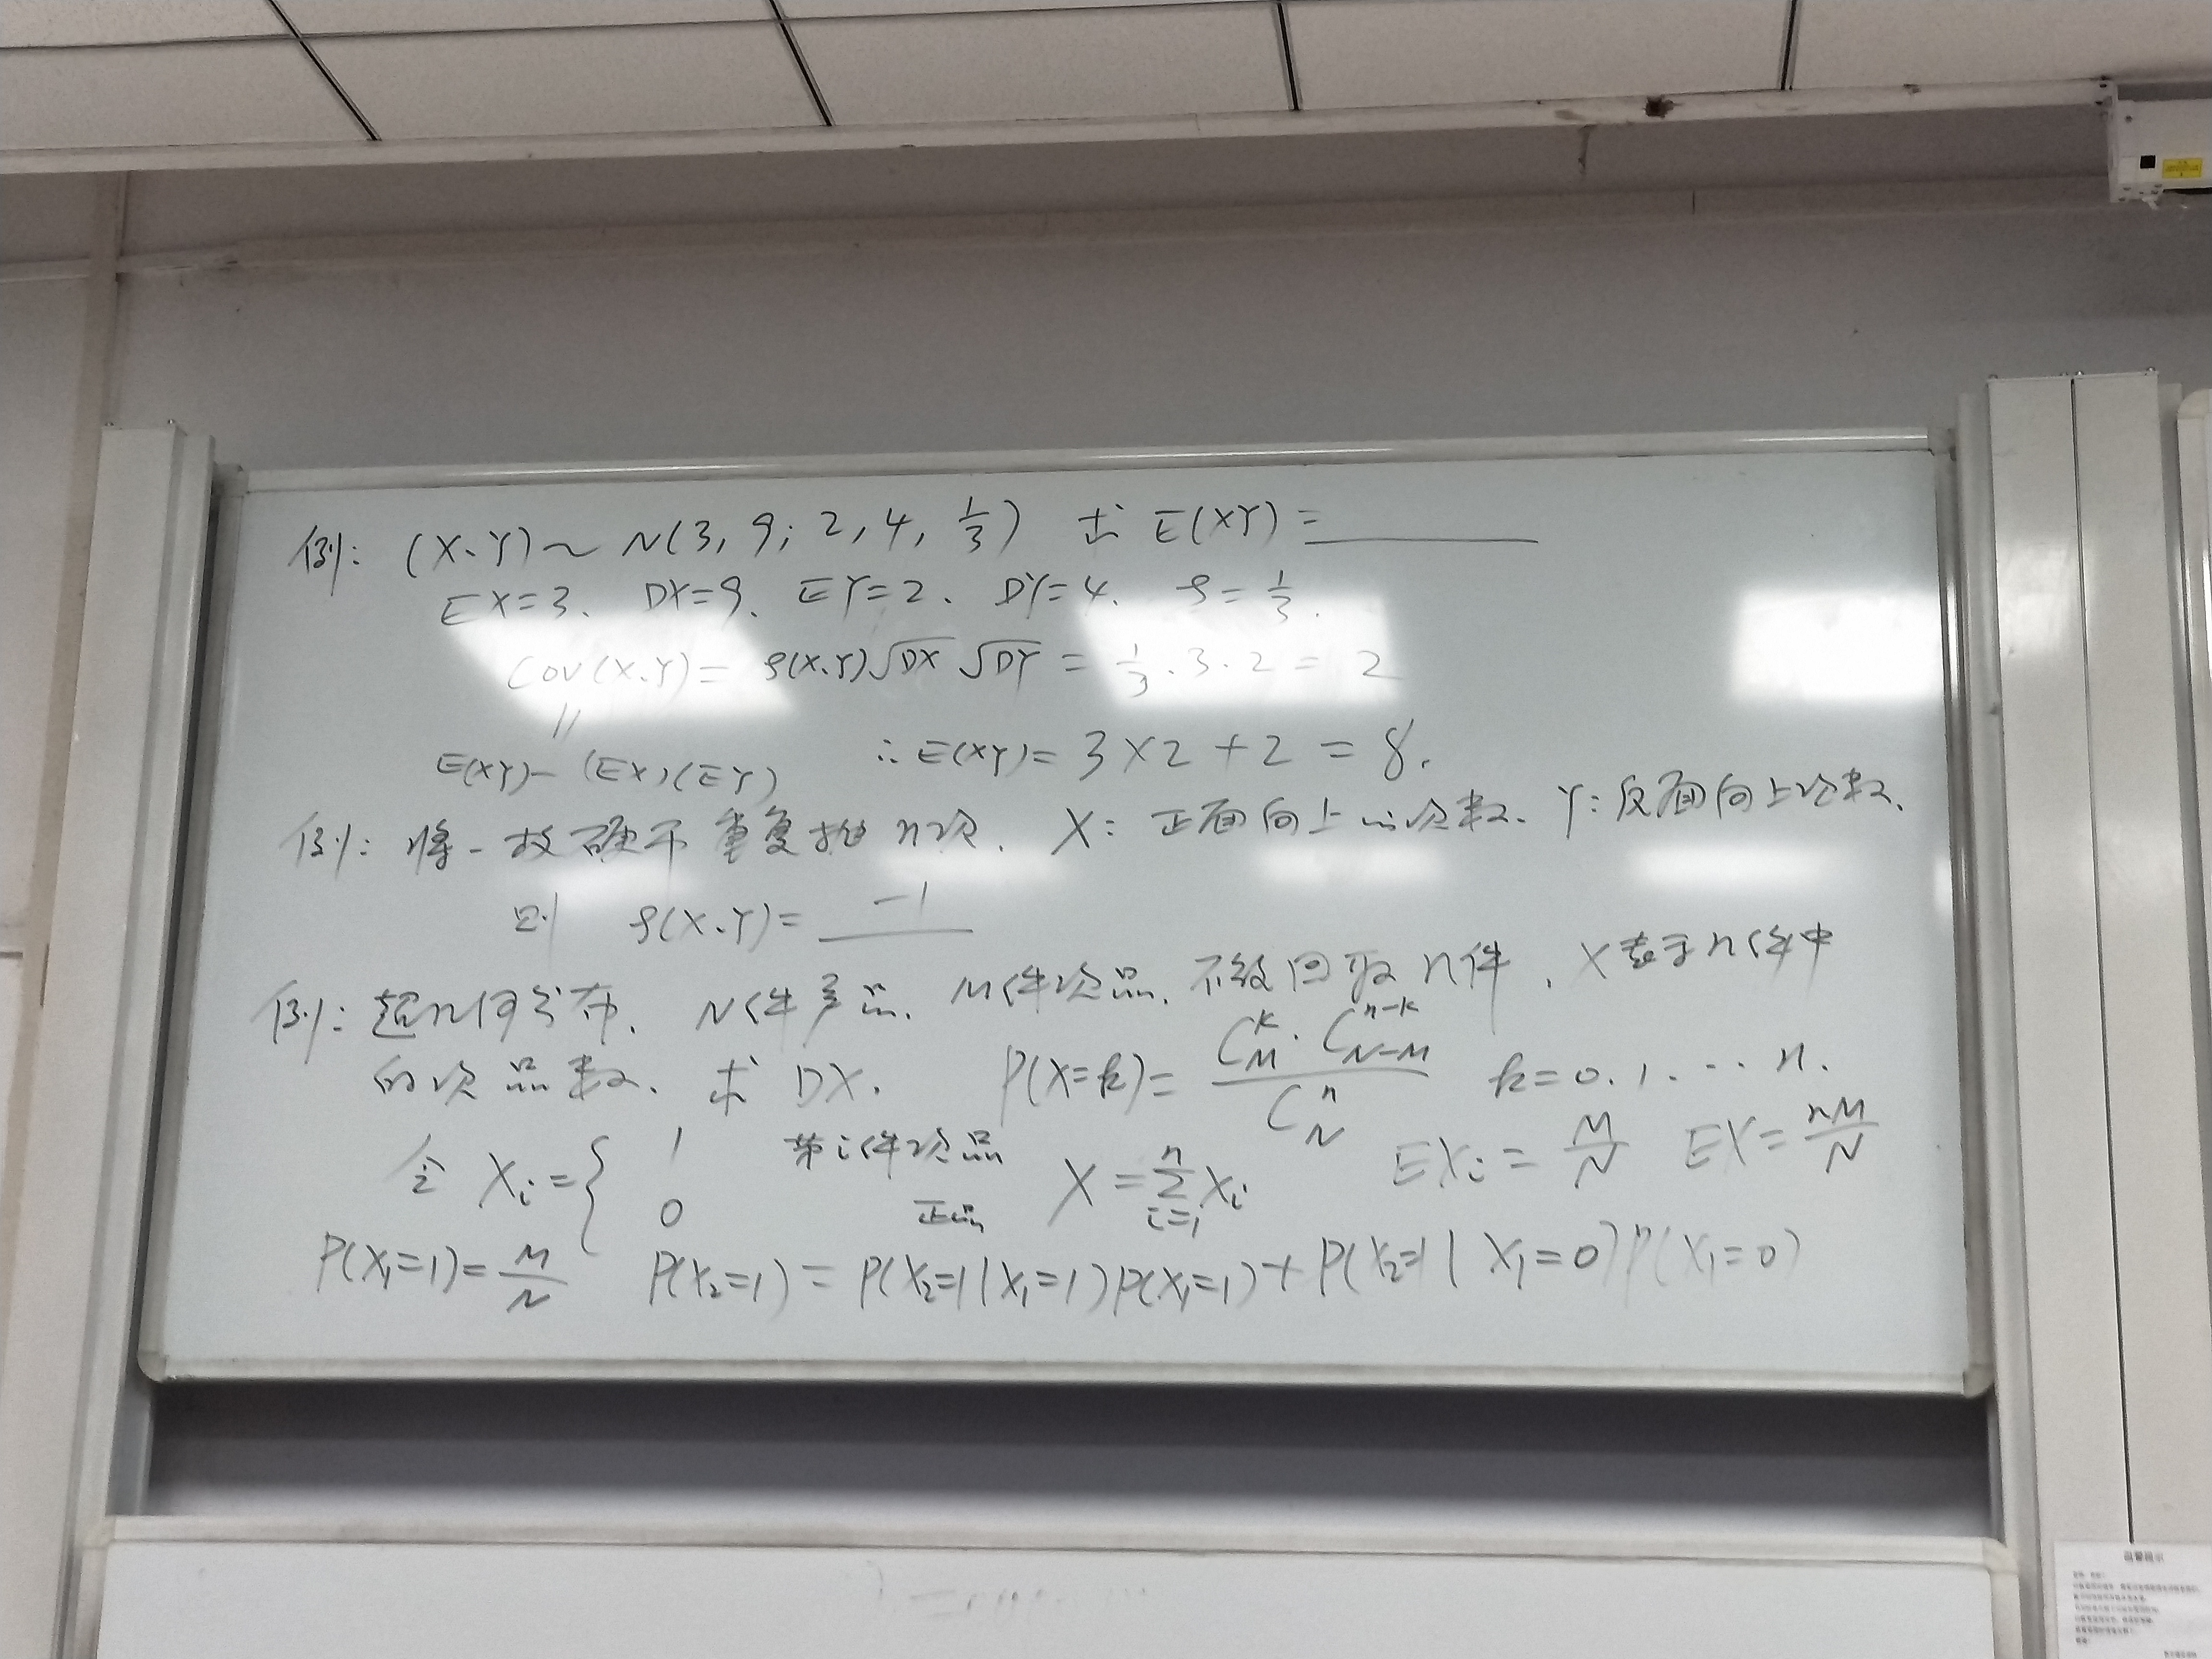 例: (X、Y)~N(3, 9; 2, 4, 1/3) 求 E(XY)=______
EX=3. DX=9. EY=2. DY=4. ρ=1/3.
Cov(X、Y)= ρ(X、Y)√DX √DY = 1/3·3·2 = 2
||
E(XY)-(EX)(EY) ∴E(XY)= 3×2+2 = 8.
例: 将一枚硬币重复抛n次. X: 正面向上的次数、Y: 反面向上次数.
则 ρ(X、Y)= -1
例: 超几何分布. N件产品. M件次品. 不放回取n件. X表示n件中
的次品数. 求 DX. P(X=k)= C_M^k · C_{N-M}^{n-k} / C_N^n k=0.1.…n.
令 Xi={ 1 第i件次品 0 正品 X=∑_{i=1}^n Xi EXi=M/N EX=nM/N
P(X₁=1)=M/N P(X₂=1)=P(X₂=1|X₁=1)P(X₁=1)+P(X₂=1|X₁=0)P(X₁=0)